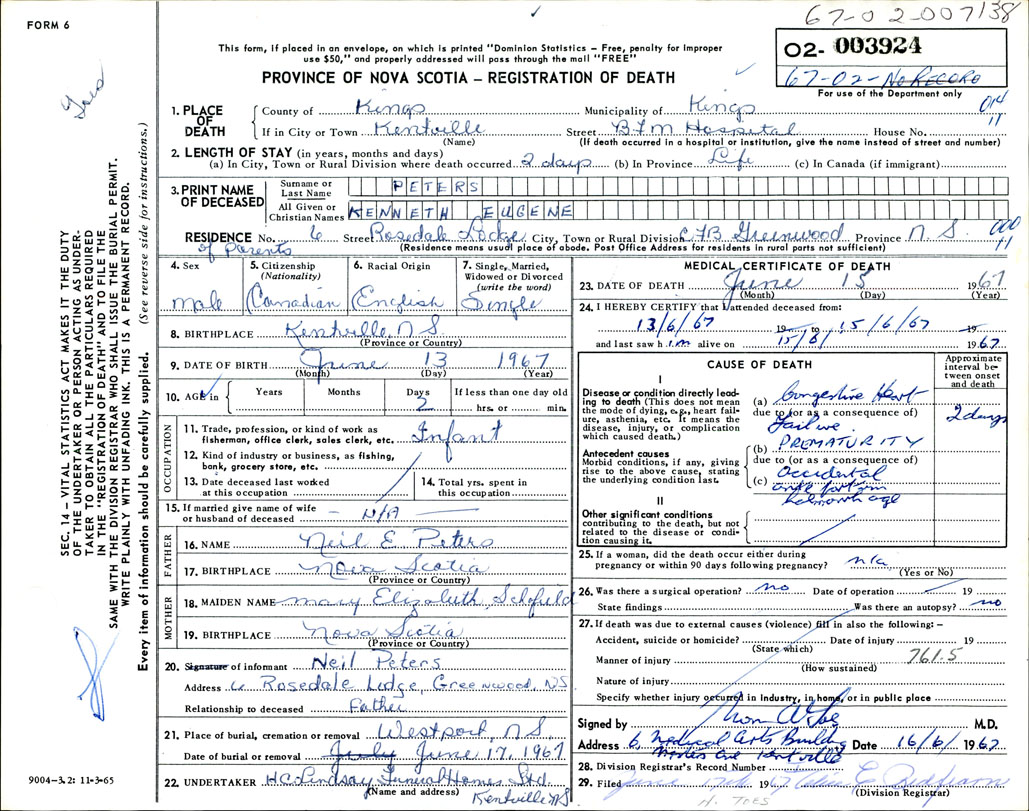 FORM 6
67-02-007138
This form, if placed in an envelope, on which is printed "Dominion Statistics – Free, penalty for improper
use $50," and properly addressed will pass through the mail "FREE"
02- 003924
67-02-No RECORD
For use of the Department only
PROVINCE OF NOVA SCOTIA – REGISTRATION OF DEATH
014
11
1. PLACE OF DEATH
County of Kings Municipality of Kings
If in City or Town Kentville Street BFM Hospital House No.
(Name) (If death occurred in a hospital or institution, give the name instead of street and number)
2. LENGTH OF STAY (in years, months and days)
(a) In City, Town or Rural Division where death occurred 2 days (b) In Province Life (c) In Canada (if immigrant)
3. PRINT NAME OF DECEASED
Surname or Last Name PETERS
All Given or Christian Names KENNETH EUGENE
RESIDENCE No. 6 Street Rosedale Lodge City, Town or Rural Division CFB Greenwood Province N.S.
000
11
of Parents (Residence means usual place of abode. Post Office Address for residents in rural parts not sufficient)
4. Sex
male
5. Citizenship
(Nationality)
Canadian
6. Racial Origin
English
7. Single, Married,
Widowed or Divorced
(write the word)
Single
8. BIRTHPLACE Kentville, N.S.
(Province or Country)
9. DATE OF BIRTH June 13 1967
(Month) (Day) (Year)
10. AGE in
Years Months Days If less than one day old
2 hrs. or min.
OCCUPATION
11. Trade, profession, or kind of work as
fisherman, office clerk, sales clerk, etc. Infant
12. Kind of industry or business, as fishing,
bank, grocery store, etc.
13. Date deceased last worked
at this occupation
14. Total yrs. spent in
this occupation
15. If married give name of wife
or husband of deceased – N/A
FATHER
16. NAME Neil E Peters
17. BIRTHPLACE Nova Scotia
(Province or Country)
MOTHER
18. MAIDEN NAME Mary Elizabeth Schofield
19. BIRTHPLACE Nova Scotia
(Province or Country)
20. Signature of informant Neil Peters
Address 6 Rosedale Lodge, Greenwood, NS
Relationship to deceased Father
21. Place of burial, cremation or removal Westport, N.S.
Date of burial or removal July June 17, 1967
22. UNDERTAKER H.C. Lindsay Funeral Homes Ltd.
(Name and address) Kentville NS
MEDICAL CERTIFICATE OF DEATH
23. DATE OF DEATH June 15 1967
(Month) (Day) (Year)
24. I HEREBY CERTIFY that I attended deceased from:
13/6/67 19 to 15/6/67 19
and last saw him alive on 15/6/ 1967
CAUSE OF DEATH
Approximate
interval be-
tween onset
and death
I
Disease or condition directly lead-
ing to death (This does not mean
the mode of dying, e.g., heart fail-
ure, asthenia, etc. It means the
disease, injury, or complication
which caused death.)
(a) Congestive Heart
due to (or as a consequence of)
Failure
2 days
Antecedent causes
Morbid conditions, if any, giving
rise to the above cause, stating
the underlying condition last.
(b) PREMATURITY
due to (or as a consequence of)
(c) Accidental
ante partum
hemorrhage
II
Other significant conditions
contributing to the death, but not
related to the disease or condi-
tion causing it.
25. If a woman, did the death occur either during
pregnancy or within 90 days following pregnancy? n/a
(Yes or No)
26. Was there a surgical operation? no Date of operation 19
State findings Was there an autopsy? no
27. If death was due to external causes (violence) fill in also the following: –
Accident, suicide or homicide? Date of injury 19
(State which)
Manner of injury 761.5
(How sustained)
Nature of injury
Specify whether injury occurred in Industry, in home, or in public place
Signed by M.D.
Address 6, Medical Arts Building Date 16/6/ 1967
Kentville
28. Division Registrar's Record Number
29. Filed June 1967
(Division Registrar)
H. TOES
SEC. 14 – VITAL STATISTICS ACT MAKES IT THE DUTY
OF THE UNDERTAKER OR PERSON ACTING AS UNDER-
TAKER TO OBTAIN ALL THE PARTICULARS REQUIRED
IN THE "REGISTRATION OF DEATH" AND TO FILE THE
SAME WITH THE DIVISION REGISTRAR WHO SHALL ISSUE THE BURIAL PERMIT.
WRITE PLAINLY WITH UNFADING INK. THIS IS A PERMANENT RECORD.
Every item of information should be carefully supplied. (See reverse side for instructions.)
9004-3.2: 11-3-65